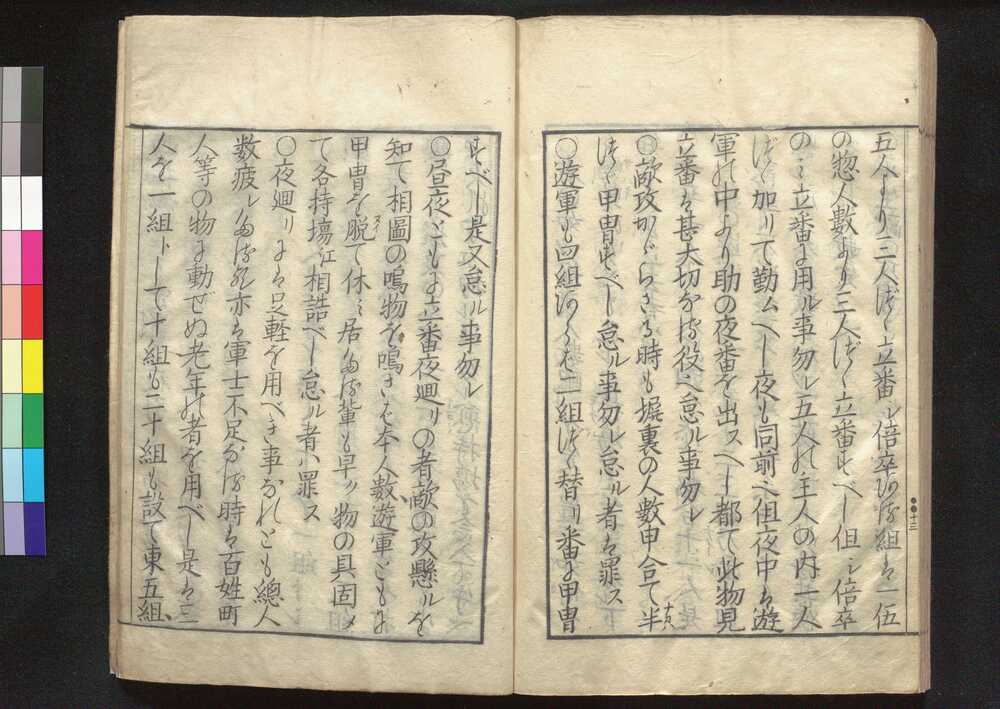 五人より三人づゝ立番し倍卒有る組は一伍
の惣人数より三人づゝ立番すべし但し倍卒
のミ立番に用ル事勿レ五人の主人の内一人
づゝ加りて勤ムヘし夜も同前也但夜中は遊
軍の中より助の夜番を出スヘし都て此物見
立番は甚大切なる役也怠ル事勿レ
○敵攻かゝらざる時も塀裏の人数申合て半
づゝ甲冑すべし怠ル事勿レ怠ル者は罪ス
○遊軍も四組有らば二組づゝ替リ番に甲冑
十三
すべし是又怠ル事勿レ
○昼夜ともに立番夜廻リの者敵の攻懸ルを
知て相圖の鳴物を鳴さば本人数遊軍ともに
甲冑を脱て休ミ居たる輩も早ク物の具固メ
て各持場江相詰べし怠ル者ハ罪ス
○夜廻リには足軽を用べき事なれとも總人
数疲レたる歟亦は軍士不足なる時は百姓町
人等の物に動ぜぬ老年の者を用べし是は三
人を一組トして十組も二十組も設て東五組